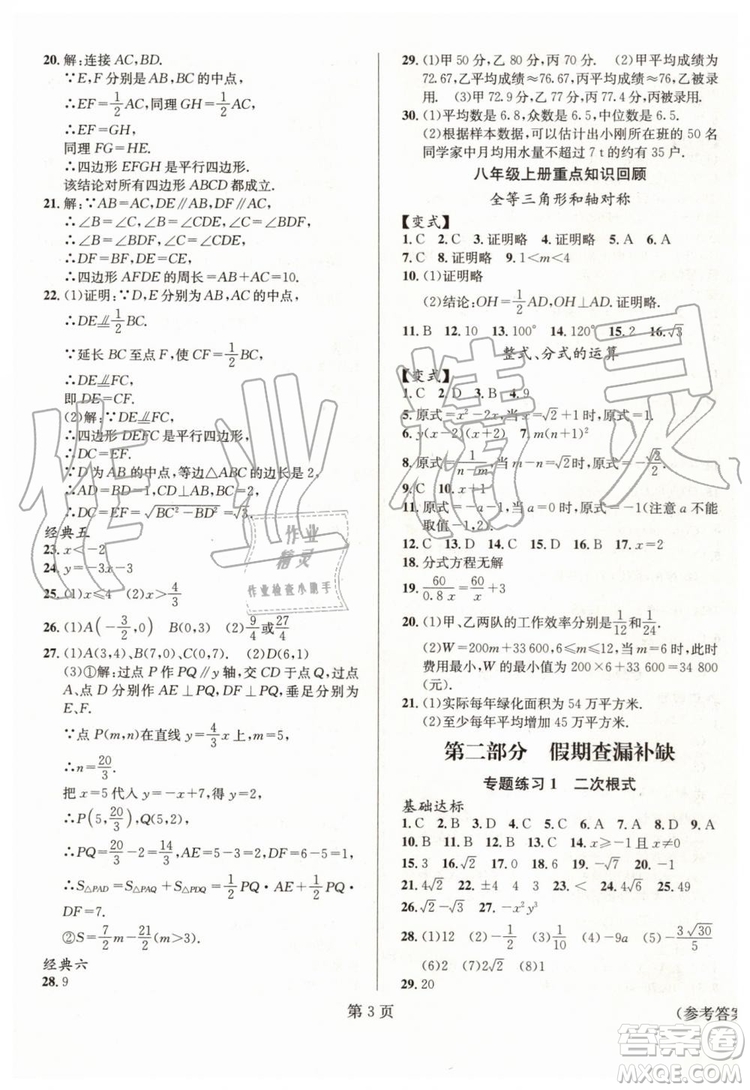 20. 解:连接 AC,BD.
∵E,F 分别是 AB,BC 的中点,
∴EF=1/2AC,同理 GH=1/2AC,
∴EF=GH,
同理 FG=HE.
∴四边形 EFGH 是平行四边形.
该结论对所有四边形 ABCD 都成立.
21. 解:∵AB=AC=5,DE∥AB,DF∥AC,
∴∠B=∠C,∠B=∠EDC,∠C=∠BDF,
∴∠B=∠BDF,∠C=∠EDC,
∴四边形 AFDE 的周长=AB+AC=10.
22. (1)证明:∵D,E 分别为 AB,AC 的中点,
BC.
∵延长 BC 至点 F,使 CF=1/2BC,
FC,
即 DE=CF.
(2)解:∵DE
∴四边形 DEFC 是平行四边形,
∴DC=EF.
∵D 为 AB 的中点,等边△ABC 的边长是 2,
∴AD=BD=1,CD⊥AB,BC=2,
∴DC=EF=√(BC²-BD²)=√3.
经典五
23. x<-2
24. -3
25. (1)x≤4 (2)x>6
26. (1)A(-3/2,0) B(0,3) (2)9/4或27/4
27. (1)A(3,4),B(0,7),C(7,0) (2)D(6,1)
(3)①解:过点 P 作 PQ∥y 轴,交 CD 于点 Q,过点 A、点 D 分别作 AE⊥PQ,DF⊥PQ,垂足分别为 E、F.
∵点 P(m,n)在直线 y=4/3x 上,m=5,
∴n=20/3.
把 x=5 代入 y=-x+7,得 y=2,
∴P(5,20/3),Q(5,2),
∴PQ=20/3-2=14/3,AE=5-3=2,DF=6-5=1,
∴S△PAD=S△PAQ+S△PDQ=1/2PQ·AE+1/2PQ·DF=7.
②S=7/2m-21/2(m>3).
经典六
28. 9
29. (1)甲 50 分,乙 80 分,丙 70 分. (2)甲平均成绩≈
72.67,乙平均成绩≈76.67,丙平均成绩≈76,乙被录
用. (3)甲72.9分,乙77分,丙77.4分,丙被录用.
30. (1)平均数是 6.8,众数是 6.5,中位数是 6.5.
(2)根据样本数据,可以估计出小刚所在班的 50 名
同学家中月均用水量不超过 7 t 的约有 35 户.
八年级上册重点知识回顾
全等三角形和轴对称
【变式】
1. C 2. C 3. 证明略 4. 证明略 5. A 6. A
7. C 8. 证明略 9. 1<m<4
10. (1)证明略
(2)结论:OH=1/2AD,OH⊥AD.
11. B 12. 10 13. 100° 14. 120° 15. 2 16. √3
整式、分式的运算
【变式】
1. C 2. D 3. B 4. 9
5. 原式=x²-2x,当 x=√2+1时,原式=1.
6. y(x+2y)(x-2y) 7. m(n+1)²
8. 原式=-1/(n-m),原式=√3/6
9. C 10. +1
11. 原式=-a-1,当 a=0 时,原式=-1(注意点 a 不能
取值-1,2).
12. C 13. C 14. A 15. D 16. B 17. C
18. 分式方程无解
19. 60/(0.8x)=60/x+4
20. (1)甲、乙两队的工作效率分别是1/12和1/24.
(2)W=200m+33 600,6≤m≤12,且为整数,此时
费用最小,W的最小值为 200×6+33 600=34 800
(元).
21. (1)实际每年绿化面积为 54 万平方米.
(2)至少每年平均增加 45 万平方米.
第二部分 假期查漏补缺
专题练习1 二次根式
基础达标
1. C 2. D 3. A 4. A 5. B 6. B 7. A 8. C 9. A
10. B 11. D 12. B 13. C 14. B
15. 3 16. √3 17. x≤9 18. >√15 19. √5 20. -1
21. 4 22. √2 ±4 23. 4 24. 10 25. 0
26. -√2 27. -x²y³
28. (1)12 (2)-1/2 (3)2/5 (4)-9a (5)-3√30/5
(6)2 (7)2
29. 20
第 3 页
(参考答案
作业精灵
作业
精灵
作业检查小助手
答案圈
MXQE.COM